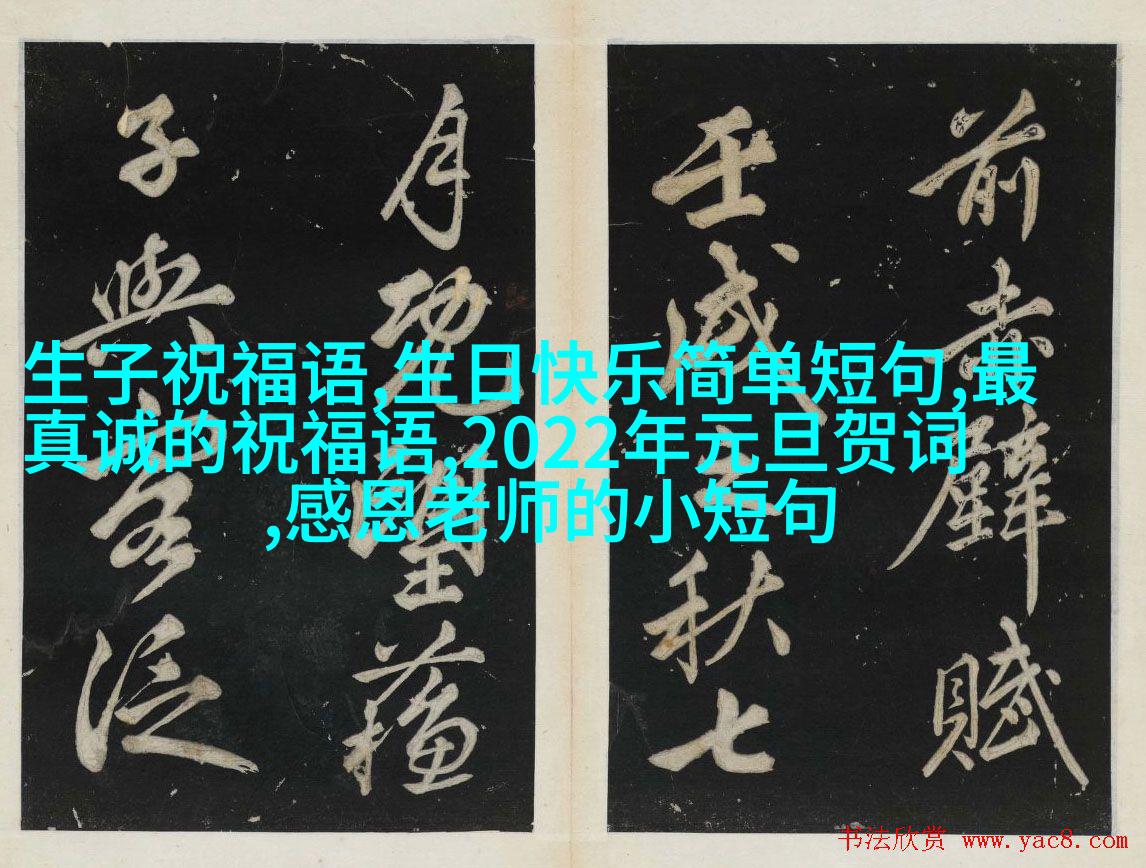 前赤壁賦
壬戌之秋七
月既望蘓
子與客泛
生子祝福语,生日快乐简单短句,最
真诚的祝福语,2022年元旦贺词
,感恩老师的小短句
书法欣赏 www.yac8.com